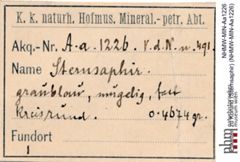 K. k. naturh. Hofmus. Mineral.-petr. Abt.
Akq.-Nr. A.a. 1226. V.d.N.n. 491.
Name Sternsaphir
graublau, mugelig, fast
kreisrund. 0.4674 gr.
Fundort
1
NHMW-MIN-Aa1226
(NHMW-MIN-Aa1226)
nhm